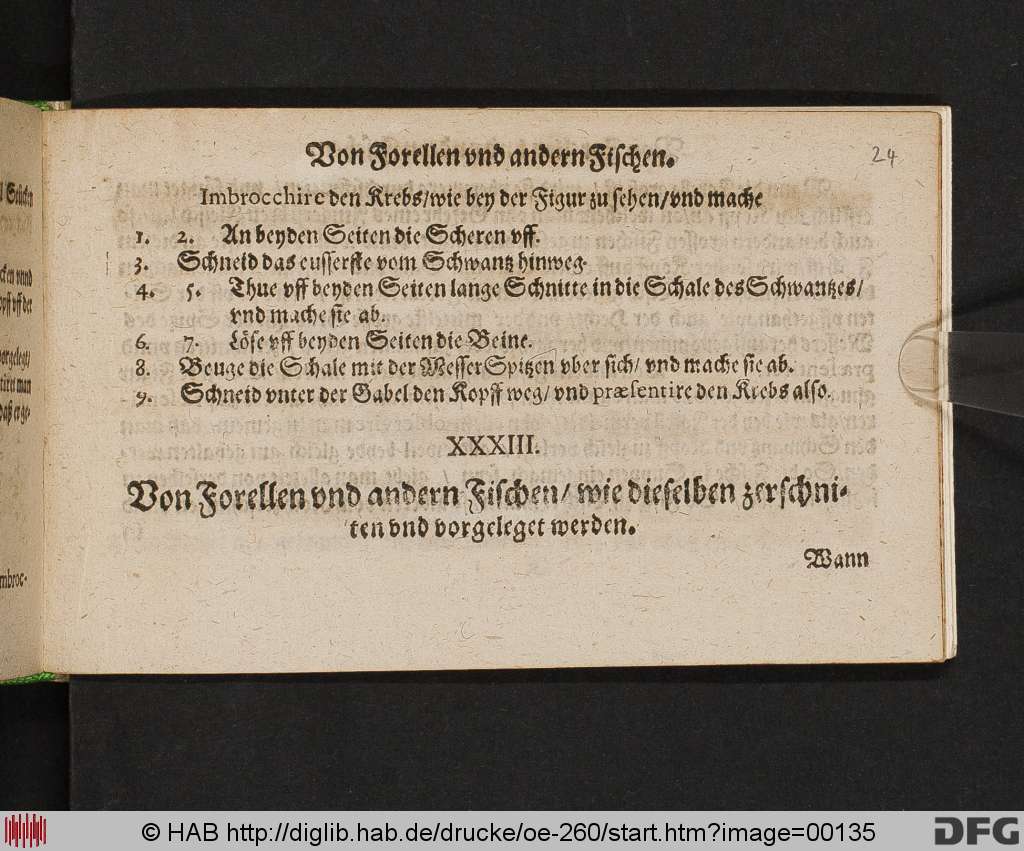 Von Forellen vnd andern Fischen.
24
Imbrocchire den Krebs/wie bey der Figur zu sehen/vnd mache
1. 2. An beyden Seiten die Scheren vff.
3. Schneid das eusserste vom Schwantz hinweg.
4. 5. Thue vff beyden Seiten lange Schnitte in die Schale des Schwantzes/
vnd mache sie ab.
6. 7. Löse vff beyden Seiten die Beine.
8. Beuge die Schale mit der Messer Spitzen vber sich/ vnd mache sie ab.
9. Schneid vnter der Gabel den Kopff weg/ vnd præsentire den Krebs also.
XXXIII.
Von Forellen vnd andern Fischen/ wie dieselben zerschni-
ten vnd vorgeleget werden.
Wann
© HAB http://diglib.hab.de/drucke/oe-260/start.htm?image=00135
DFG